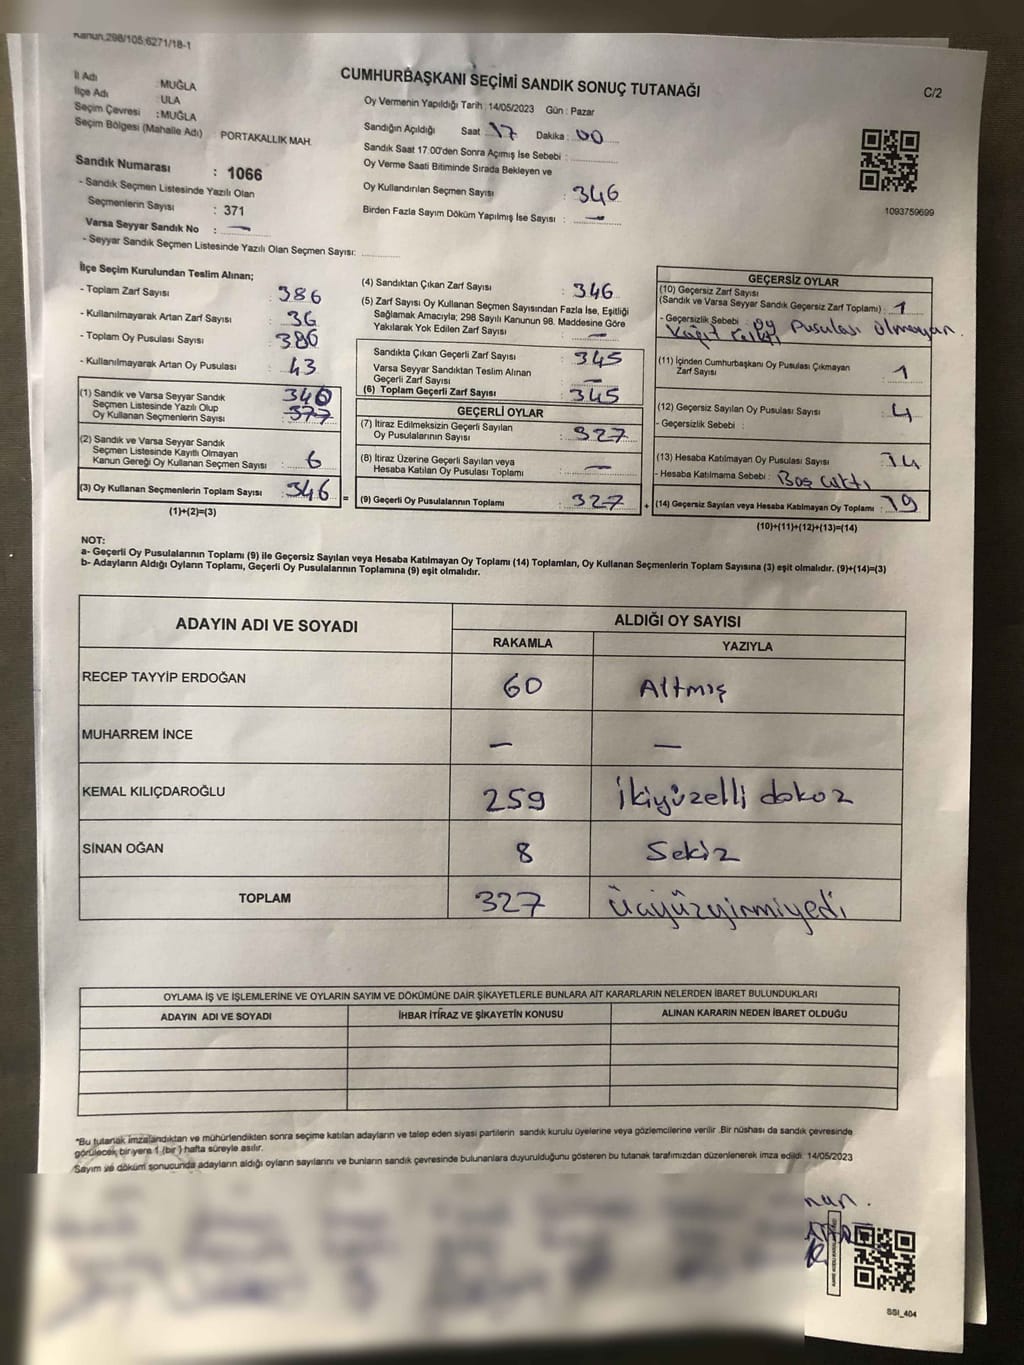 Kanun,298/105;6271/18-1
CUMHURBAŞKANI SEÇİMİ SANDIK SONUÇ TUTANAĞI
C/2
İl Adı : MUĞLA
İlçe Adı : ULA
Seçim Çevresi : MUĞLA
Seçim Bölgesi (Mahalle Adı) : PORTAKALLIK MAH.
Sandık Numarası : 1066
- Sandık Seçmen Listesinde Yazılı Olan
Seçmenlerin Sayısı : 371
Varsa Seyyar Sandık No : —
- Seyyar Sandık Seçmen Listesinde Yazılı Olan Seçmen Sayısı:
Oy Vermenin Yapıldığı Tarih : 14/05/2023 Gün : Pazar
Sandığın Açıldığı Saat : 17 Dakika : 00
Sandık Saat 17:00'den Sonra Açımış İse Sebebi :
Oy Verme Saati Bitiminde Sırada Bekleyen ve
Oy Kullandırılan Seçmen Sayısı : 346
Birden Fazla Sayım Döküm Yapılmış İse Sayısı : —
1093759699
İlçe Seçim Kurulundan Teslim Alınan;
- Toplam Zarf Sayısı : 386
- Kullanılmayarak Artan Zarf Sayısı : 36
- Toplam Oy Pusulası Sayısı : 386
- Kullanılmayarak Artan Oy Pusulası : 43
(1) Sandık ve Varsa Seyyar Sandık
Seçmen Listesinde Yazılı Olup
Oy Kullanan Seçmenlerin Sayısı : 340
(2) Sandık ve Varsa Seyyar Sandık
Seçmen Listesinde Kayıtlı Olmayan
Kanun Gereği Oy Kullanan Seçmen Sayısı : 6
(3) Oy Kullanan Seçmenlerin Toplam Sayısı : 346
(1)+(2)=(3)
=
(4) Sandıktan Çıkan Zarf Sayısı : 346
(5) Zarf Sayısı Oy Kullanan Seçmen Sayısından Fazla İse, Eşitliği
Sağlamak Amacıyla; 298 Sayılı Kanunun 98. Maddesine Göre
Yakılarak Yok Edilen Zarf Sayısı : —
Sandıkta Çıkan Geçerli Zarf Sayısı : 345
Varsa Seyyar Sandıktan Teslim Alınan
Geçerli Zarf Sayısı : —
(6) Toplam Geçerli Zarf Sayısı : 345
GEÇERLİ OYLAR
(7) İtiraz Edilmeksizin Geçerli Sayılan
Oy Pusulalarının Sayısı : 327
(8) İtiraz Üzerine Geçerli Sayılan veya
Hesaba Katılan Oy Pusulası Toplamı : —
(9) Geçerli Oy Pusulalarının Toplamı : 327
+
GEÇERSİZ OYLAR
(10) Geçersiz Zarf Sayısı
(Sandık ve Varsa Seyyar Sandık Geçersiz Zarf Toplamı) : 1
- Geçersizlik Sebebi : oy pusulası olmayan
(11) İçinden Cumhurbaşkanı Oy Pusulası Çıkmayan
Zarf Sayısı : 1
(12) Geçersiz Sayılan Oy Pusulası Sayısı : 4
- Geçersizlik Sebebi :
(13) Hesaba Katılmayan Oy Pusulası Sayısı : 14
- Hesaba Katılmama Sebebi : Boş çıktı
(14) Geçersiz Sayılan veya Hesaba Katılmayan Oy Toplamı : 19
(10)+(11)+(12)+(13)=(14)
NOT:
a- Geçerli Oy Pusulalarının Toplamı (9) ile Geçersiz Sayılan veya Hesaba Katılmayan Oy Toplamı (14) Toplamları, Oy Kullanan Seçmenlerin Toplam Sayısına (3) eşit olmalıdır. (9)+(14)=(3)
b- Adayların Aldığı Oyların Toplamı, Geçerli Oy Pusulalarının Toplamına (9) eşit olmalıdır.
ADAYIN ADI VE SOYADI
ALDIĞI OY SAYISI
RAKAMLA YAZIYLA
RECEP TAYYİP ERDOĞAN 60 Altmış
MUHARREM İNCE — —
KEMAL KILIÇDAROĞLU 259 İkiyüzelli dokoz
SİNAN OĞAN 8 Sekiz
TOPLAM 327 Üçyüzyirmiyedi
OYLAMA İŞ VE İŞLEMLERİNE VE OYLARIN SAYIM VE DÖKÜMÜNE DAİR ŞİKAYETLERLE BUNLARA AİT KARARLARIN NELERDEN İBARET BULUNDUKLARI
ADAYIN ADI VE SOYADI İHBAR İTİRAZ VE ŞİKAYETİN KONUSU ALINAN KARARIN NEDEN İBARET OLDUĞU
*Bu tutanak imzalandıktan ve mühürlendikten sonra seçime katılan adayların ve talep eden siyasi partilerin sandık kurulu üyelerine veya gözlemcilerine verilir .Bir nüshası da sandık çevresinde
görülecek bir yere 1 (bir ) hafta süreyle asılır.
Sayım ve döküm sonucunda adayların aldığı oyların sayılarını ve bunların sandık çevresinde bulunanlara duyurulduğunu gösteren bu tutanak tarafımızdan düzenlenerek imza edildi. 14/05/2023
SSI_404